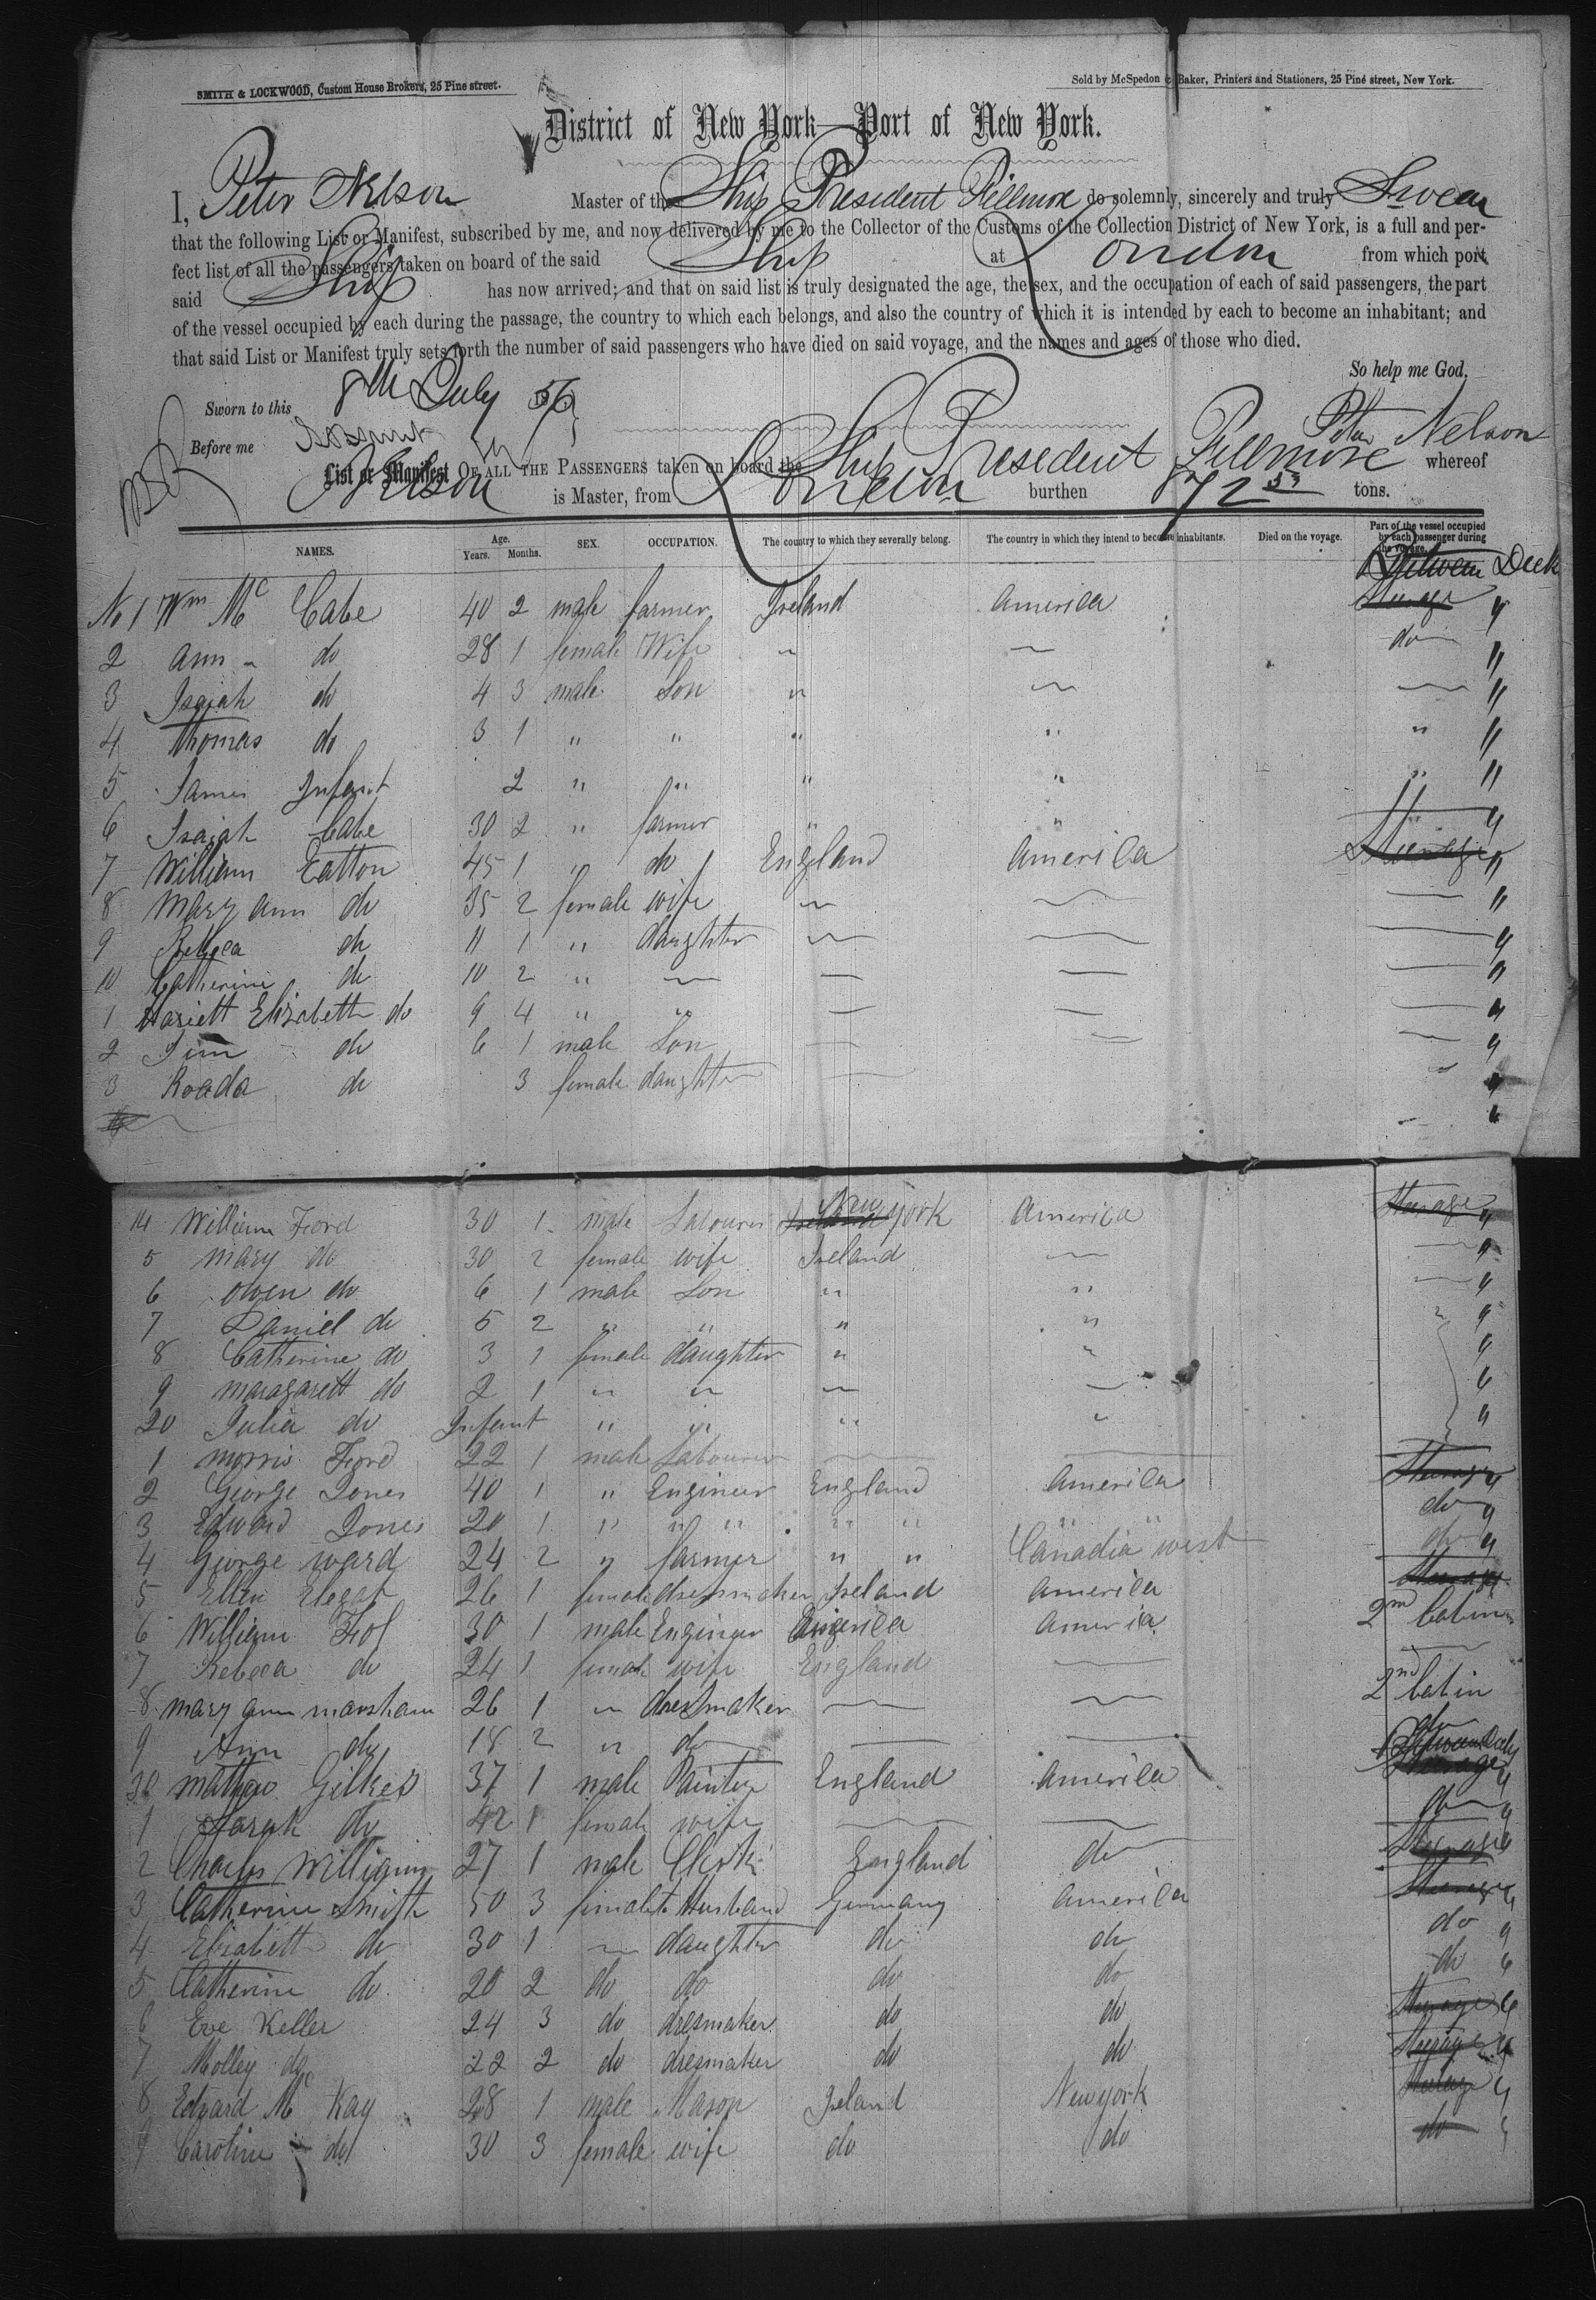 SMITH & LOCKWOOD, Custom House Brokers, 25 Pine street.
Sold by McSpedon & Baker, Printers and Stationers, 25 Pine street, New York.
District of New York—Port of New York.
I, Peter Nelson Master of the Ship President Fillmore do solemnly, sincerely and truly Swear
that the following List or Manifest, subscribed by me, and now delivered by me to the Collector of the Customs of the Collection District of New York, is a full and per-
fect list of all the passengers taken on board of the said Ship at London from which port
said Ship has now arrived; and that on said list is truly designated the age, the sex, and the occupation of each of said passengers, the part
of the vessel occupied by each during the passage, the country to which each belongs, and also the country of which it is intended by each to become an inhabitant; and
that said List or Manifest truly sets forth the number of said passengers who have died on said voyage, and the names and ages of those who died.
So help me God.
Sworn to this 8th July 56
Before me
Peter Nelson
List or Manifest OF ALL THE PASSENGERS taken on board the Ship Presedent Fillmore whereof
Nelson is Master, from London burthen 872 53 tons.
NAMES. Age. Years. Months. SEX. OCCUPATION. The country to which they severally belong. The country in which they intend to become inhabitants. Died on the voyage. Part of the vessel occupied by each passenger during the voyage.
Between Deck
No 1 Wm Mc Cabe 40 2 male farmer Ireland America Steerage "
2 Ann " do 28 1 female Wife " " do "
3 Isaiah do 4 3 male Son " " "
4 Thomas do 3 1 " " " " " "
5 James Infant 2 " " " " " "
6 Isaiah Cabe 30 2 " farmer " " "
7 William Tatton 45 1 " do England America Steerage "
8 Mary Ann do 35 2 female wife " "
9 Rebeca do 11 1 " daughter " "
10 Catherine do 10 2 " " "
1 Hariett Elizabeth do 9 4 " " "
2 Jim do 6 1 male Son "
3 Roada do 3 female daughter "
14 William Ford 30 1 male Labourer Ireland New york America Steerage "
5 Mary do 30 2 female wife Ireland "
6 Owen do 6 1 male Son " " "
7 Daniel do 5 2 " " " " "
8 Catherine do 3 1 female daughter " " "
9 Maragarett do 2 1 " " " "
20 Julia do Infant " " " " "
1 Morris Ford 22 1 male Labourer Steerage "
2 George Jones 40 1 " Engineer England America do "
3 Edward Jones 20 1 " " " " " " " do "
4 George Ward 24 2 " farmer " " Canadia west Steerage
5 Ellen 26 1 female dressmaker Ireland America
6 William 30 1 male Engineer America America 2nd Cabin
7 Rebeca do 24 1 female wife England
8 Mary Ann Marsham 26 1 " dressmaker 2nd Cabin
9 Ann do 18 2 " do do
Between Deck
30 Mathew Gilkes 37 1 male Painter England America Steerage "
1 Sarah do 42 1 female wife do "
2 Charles Williams 27 1 male Clerk England do Steerage
3 Catherine Smith 50 3 female to Husband Germany America Steerage
4 Elizabeth do 30 1 " daughter do do do "
5 Catherine do 20 2 do do do do do "
6 Eve Keller 24 3 do dresmaker do do Steerage "
7 Molley do 22 2 do dresmaker do do Steerage "
8 Edward Mc Kay 28 1 male Mason Ireland New york Steerage "
9 Caroline do 30 3 female wife do do do "